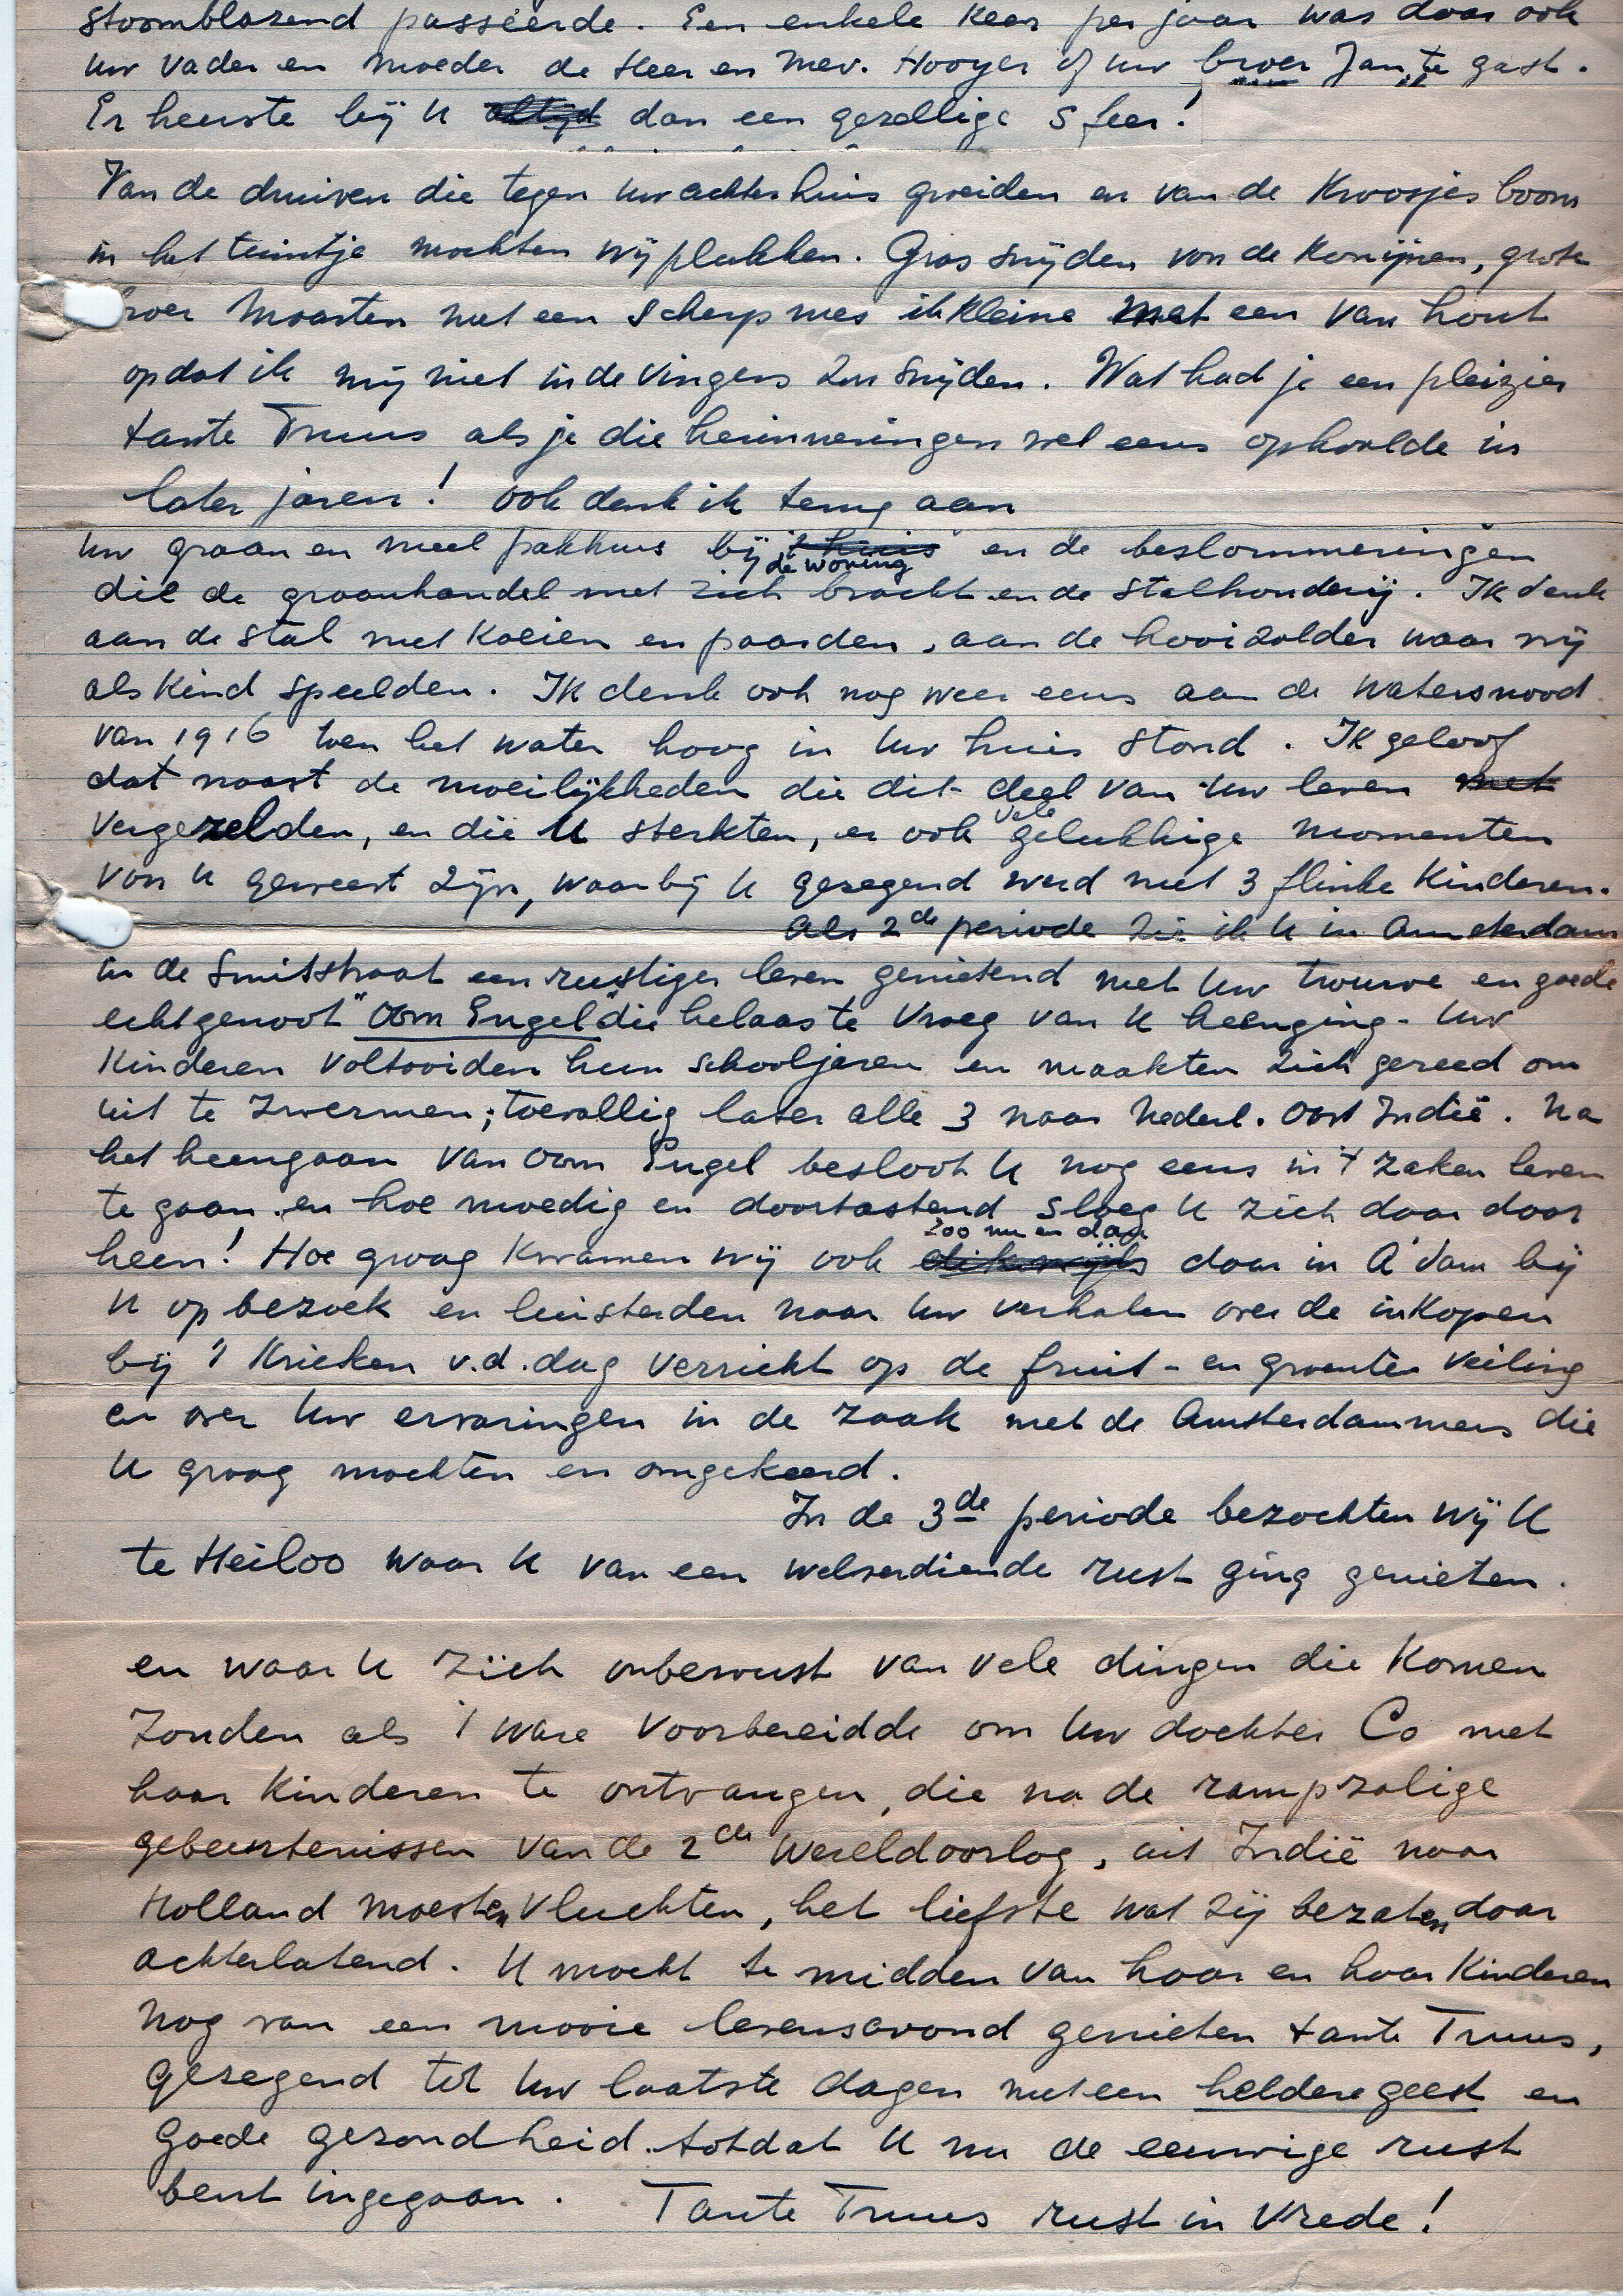 stoomblazend passeerde. Een enkele keer per jaar was daar ook
uw vader en moeder de Heer en Mev. Hooyer of uw broer Jan te gast.
Er heerste bij U altijd dan een gezellige sfeer!
Van de druiven die tegen uw achterhuis groeiden en van de Kroosjesboom
in het tuintje mochten wij plukken. Gras snijden von de Konijnen, grote
broer Maarten met een scherp mes ik kleine met een van hout
opdat ik mij niet in de vingers zou snijden. Wat had je een pleizier
tante Truus als je die herinneringen wel eens ophaalde in
later jaren! Ook denk ik terug aan
uw graan en meel pakhuis bij 't huis de woning en de beslommeringen
die de graanhandel met zich bracht en de Stalhouderij. Ik denk
aan de stal met Koeien en paarden, aan de hooizolder waar wij
als Kind speelden. Ik denk ook nog weer eens aan de Watersnood
van 1916 toen het water hoog in Uw huis stond. Ik geloof
dat naast de moeilijkheden die dit deel van Uw leven met
vergezelden, en die U sterkten, er ook vele gelukkige momenten
von U geweest zijn, waarbij U gezegend werd met 3 flinke Kinderen.
Als 2de periode zie ik U in Amsterdam
in de Smitstraat een rustiger leven genietend met Uw trouwe en goede
echtgenoot "Oom Engel" die helaas te vroeg van U heenging - Uw
Kinderen voltooiden hun schooljaren en maakten zich gereed om
uit te zwermen; toevallig later alle 3 naar Nederl. Oost Indië. Na
het heengaan van oom Engel besloot U nog eens in 't zaken leven
te gaan en hoe moedig en doortastend sloeg U zich daar door
heen! Hoe graag Kwamen wij ook dikwijls zoo nu en dan daar in A'dam bij
U op bezoek en luisterden naar Uw verhalen over de inkopen
bij 't Krieken v.d. dag verricht op de fruit- en groenten veiling
en over Uw ervaringen in de zaak met de Amsterdammers die
U graag mochten en omgekeerd.
In de 3de periode bezochten wij U
te Heiloo waar U van een welverdiende rust ging genieten.
en waar U zich onbewust van vele dingen die Komen
zouden als 't ware voorbereidde om Uw dochter Co met
haar Kinderen te ontvangen, die na de rampzalige
gebeurtenissen van de 2de Wereldoorlog, uit Indië naar
Holland moesten vluchten, het liefste wat zij bezaten daar
achterlatend. U mocht te midden van haar en haar Kinderen
nog van een mooie levensavond genieten tante Truus,
gezegend tot Uw laatste dagen met een heldere geest en
goede gezondheid. totdat U nu de eeuwige rust
bent ingegaan. Tante Truus rust in Vrede!